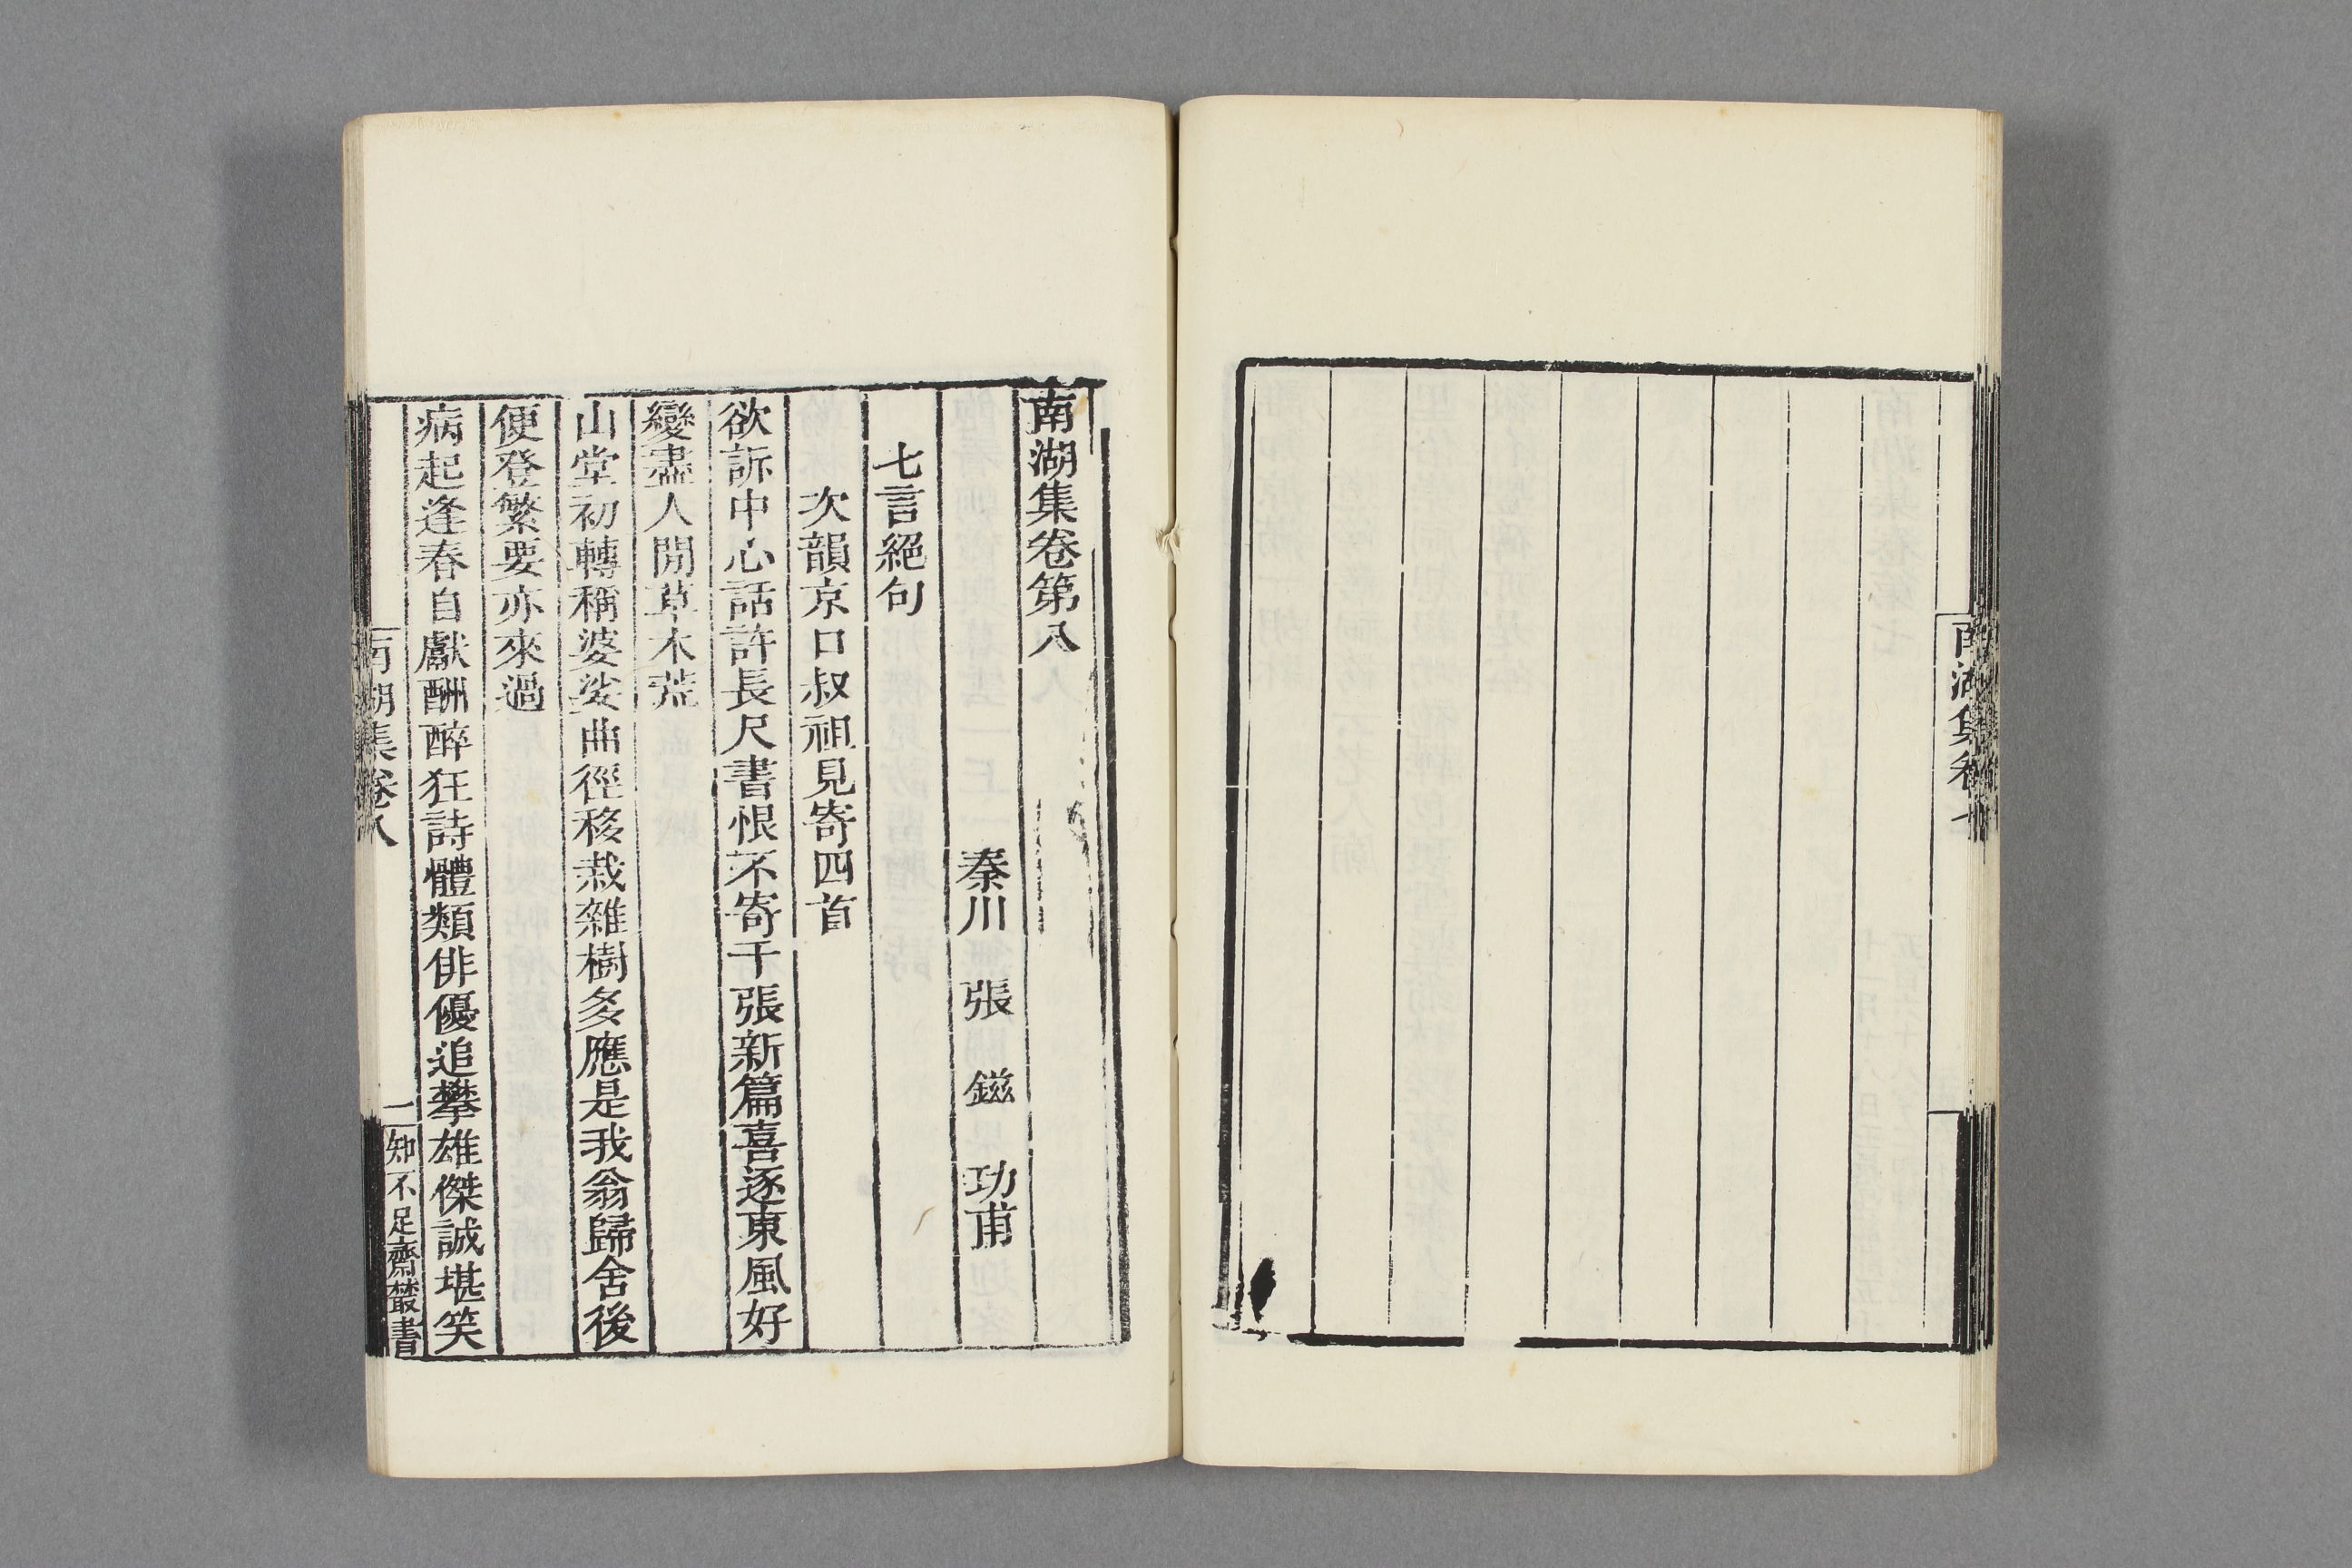 南湖集卷第八
秦川　張　鎡　功甫
七言絕句
次韻京口叔祖見寄四首
欲訴中心話許長尺書恨不寄千張新篇喜逐東風好
變盡人閒草木荒
山堂初轉稱婆娑曲徑移栽雜樹多應是我翁歸舍後
便登繁要亦來過
病起逢春自獻酬醉狂詩體類俳優追攀雄傑誠堪笑
南湖集卷八
一
知不足齋叢書